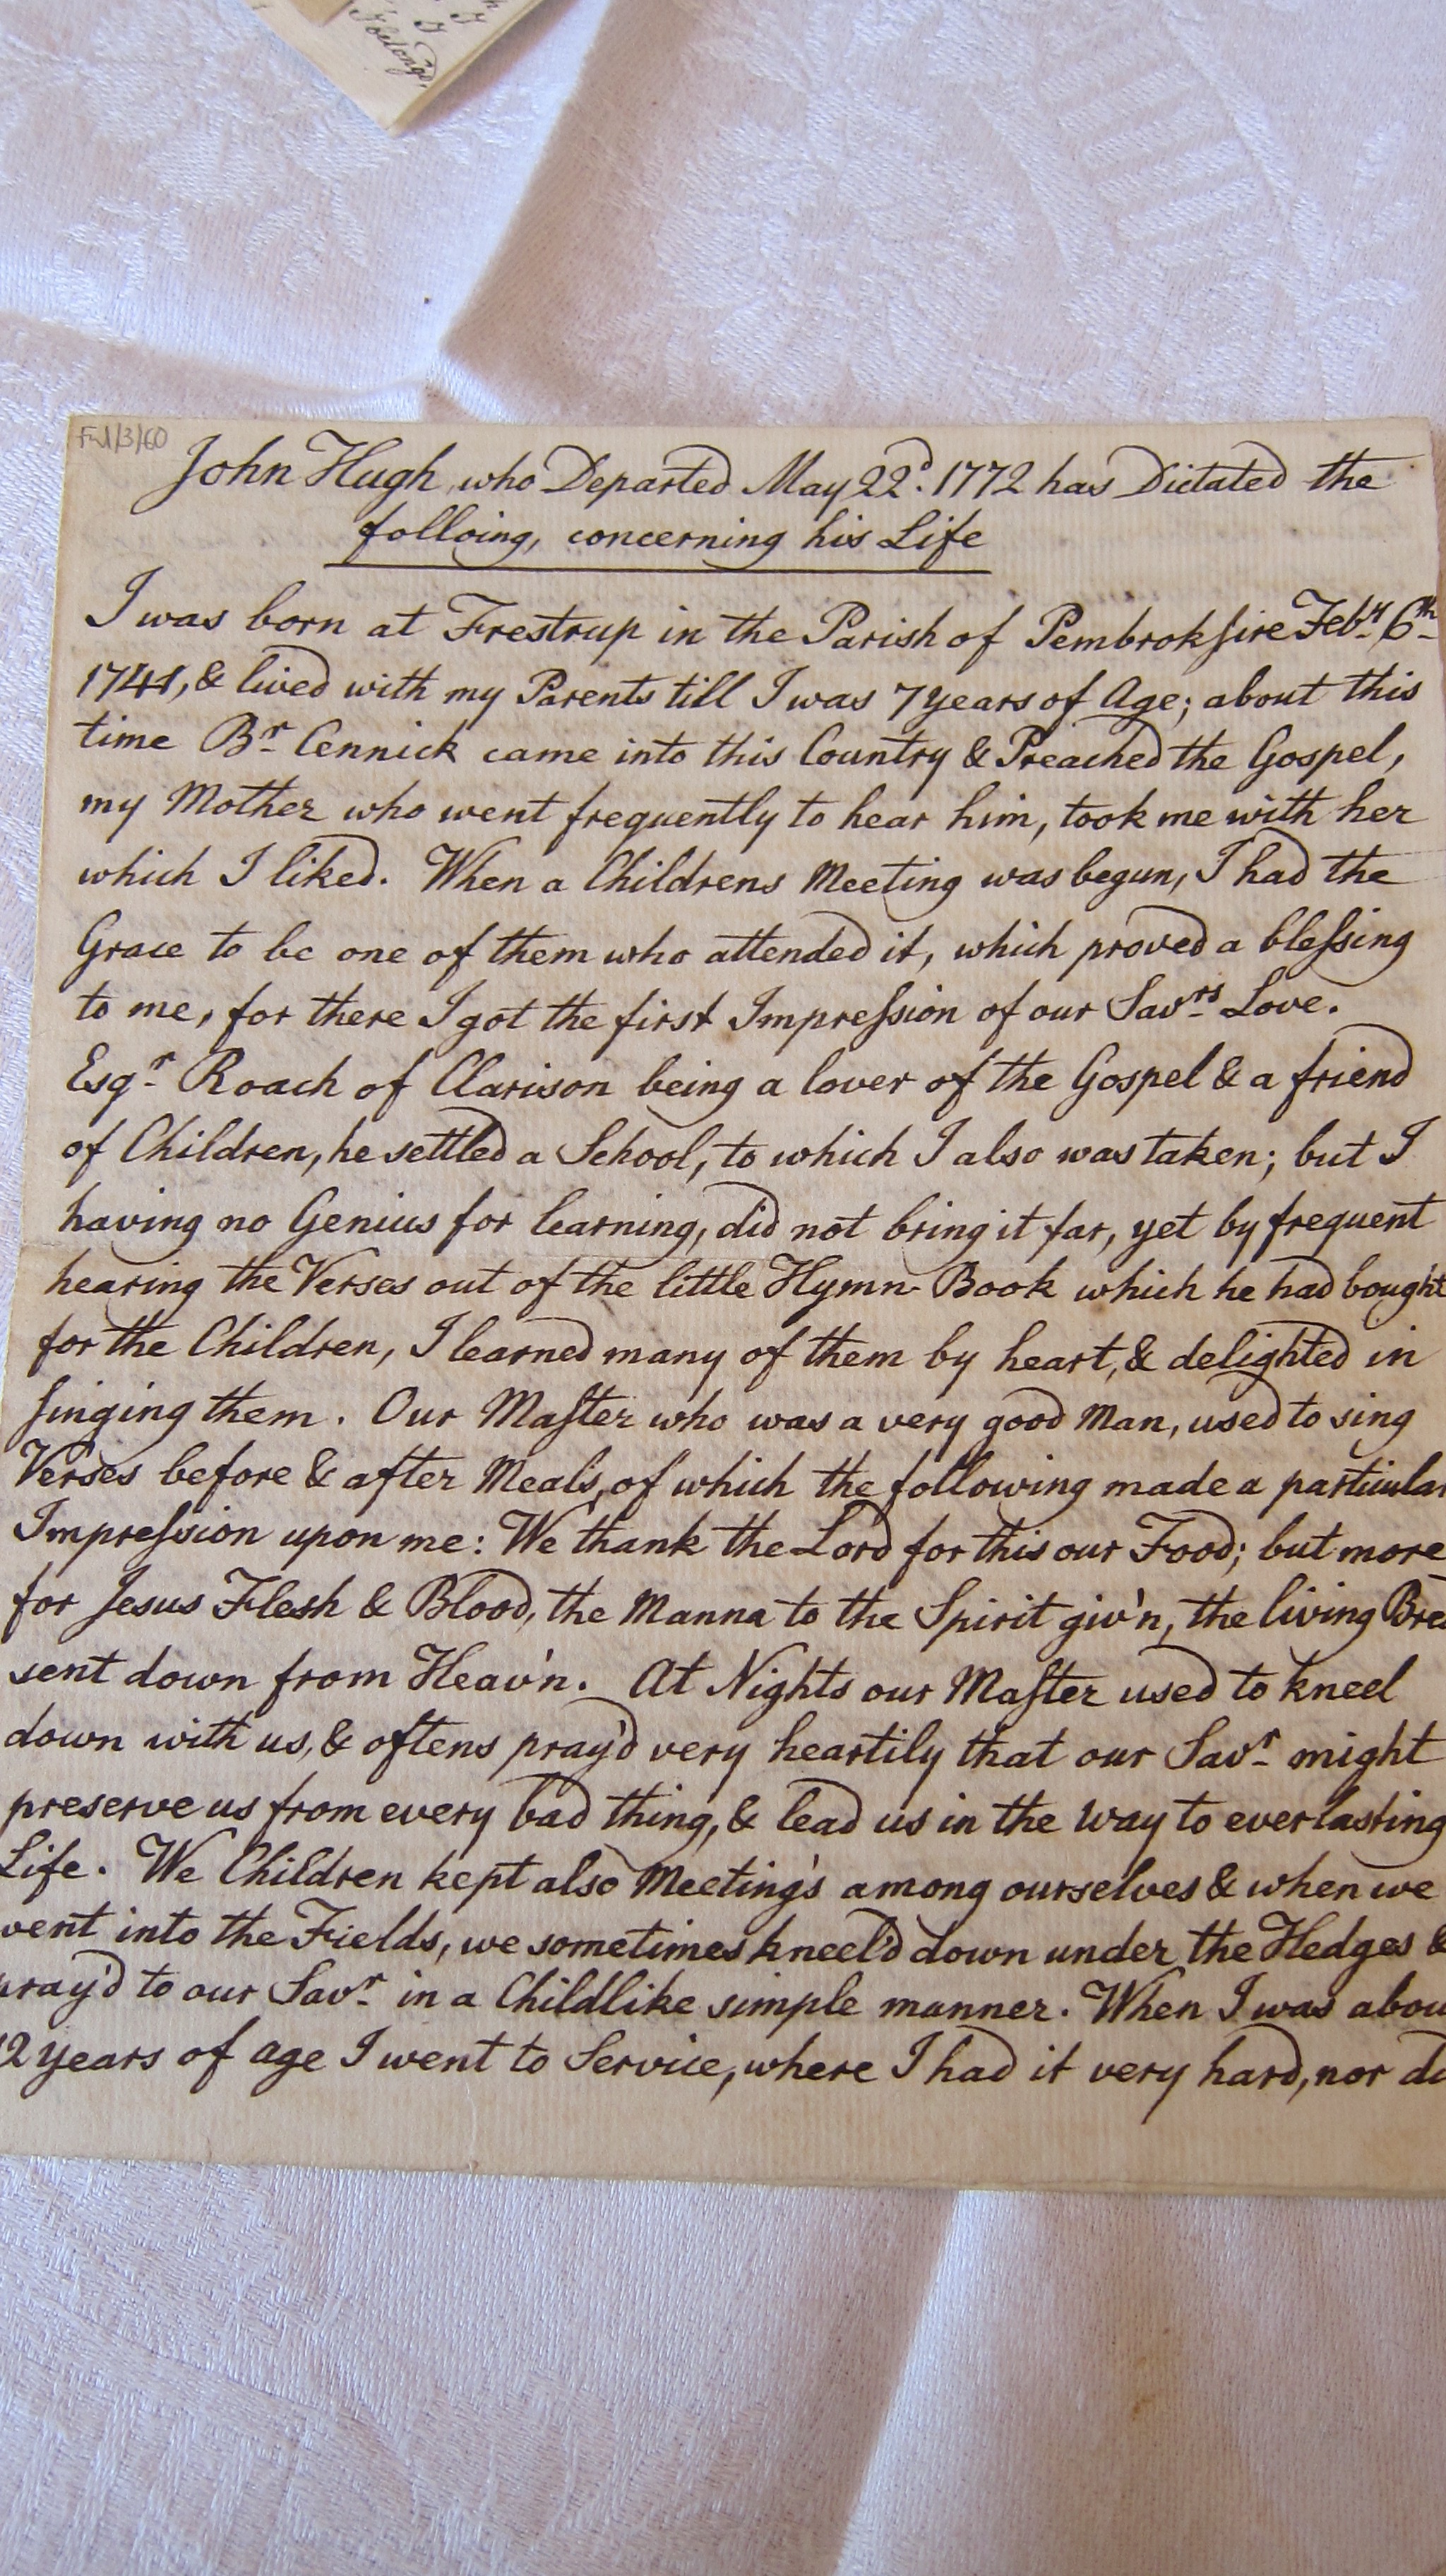 Ibelongs,
John Hugh, who Departed May 22d. 1772 has Dictated the
folloing, concerning his Life
I was born at Frestrup in the Parish of Pembrokſire Febry 6th
1741, & lived with my Parents till I was 7 years of Age; about this
time Br Cennick came into this Country & Preached the Gospel,
my Mother who went frequently to hear him, took me with her
which I liked. When a Childrens Meeting was begun, I had the
Grace to be one of them who attended it, which proved a bleſsing
to me, for there I got the first Impreſsion of our Savrs Love.
Esqr Roach of Clarison being a lover of the Gospel & a friend
of Children, he settled a School, to which I also was taken; but I
having no Genius for learning, did not bring it far, yet by frequent
hearing the Verses out of the little Hymn-Book which he had bought
for the Children, I learned many of them by heart, & delighted in
ſinging them. Our Maſter who was a very good Man, used to sing
Verses before & after Meals, of which the following made a particular
Impreſsion upon me: We thank the Lord for this our Food; but more
for Jesus Flesh & Blood, the Manna to the Spirit giv'n, the living Brea
sent down from Heav'n. At Nights our Maſter used to kneel
down with us, & oftens pray'd very heartily that our Savr might
preserve us from every bad thing, & lead us in the way to everlasting
Life. We Children kept also Meeting's among ourselves & when we
went into the Fields, we sometimes kneel'd down under the Hedges &
pray'd to our Savr in a Childlike simple manner. When I was abou
12 years of age I went to Service, where I had it very hard, nor